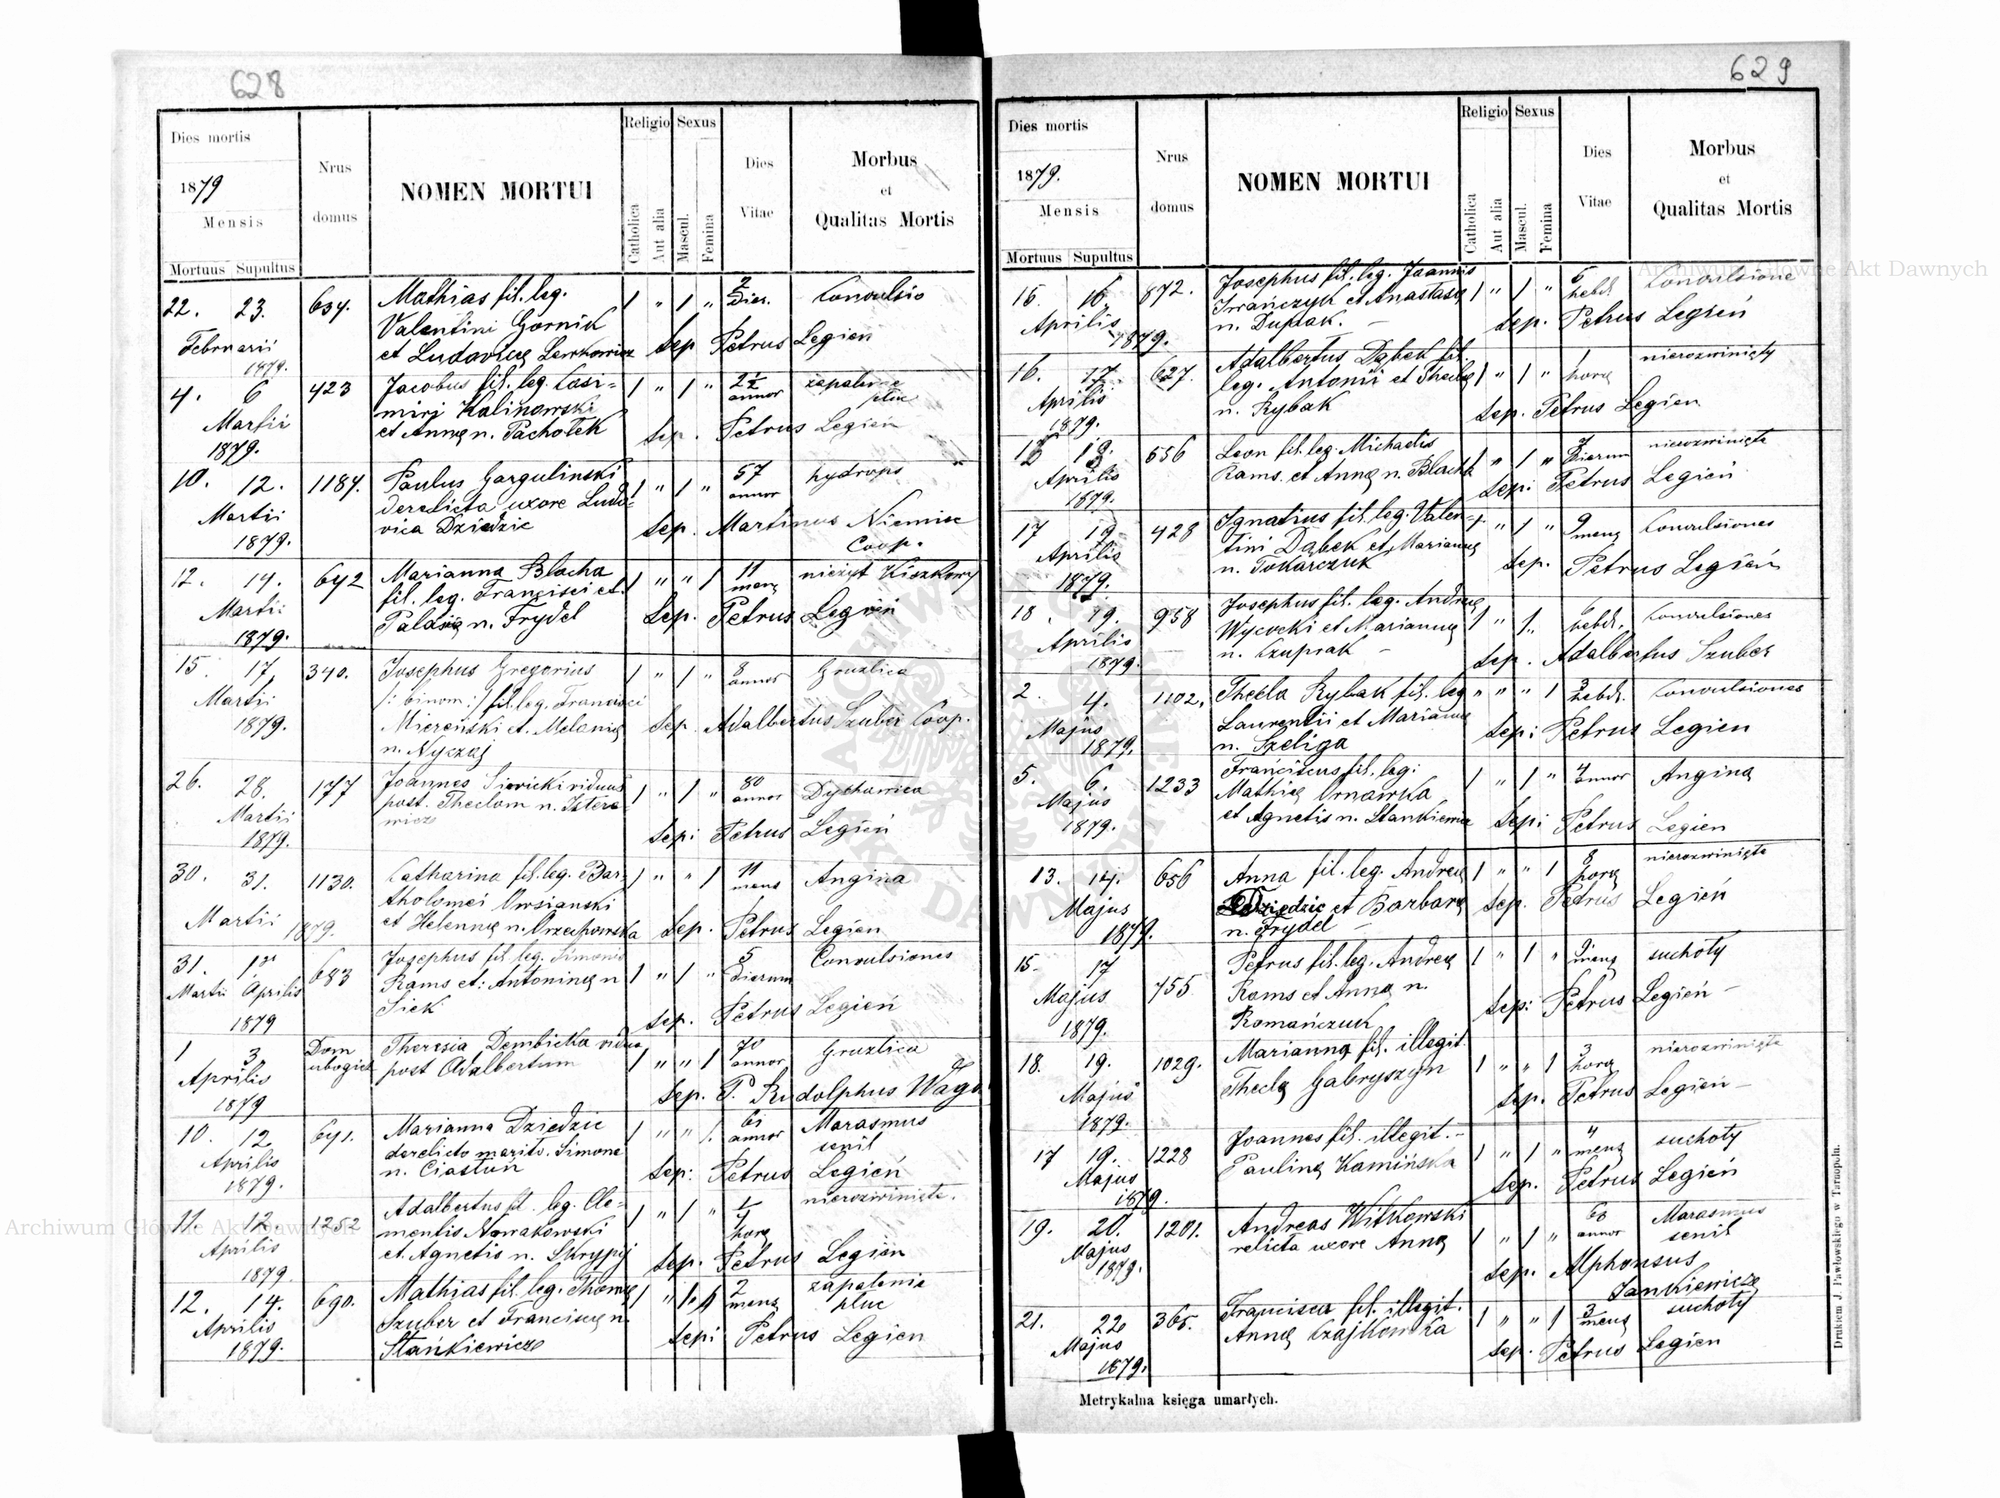 628
Dies mortis
1879
Mensis
Mortuus Supultus
Nrus
domus
NOMEN MORTUI
Religio
Catholica
Aut alia
Sexus
Mascul.
Femina
Dies
Vitae
Morbus
et
Qualitas Mortis
22. 23. 634. Mathias fil. leg. 1 " 1 " 2 Dier. Convulsio
Februarii Valentini Gornik
1879. et Ludovicę Lewkowicz Sep. Petrus Legien
4. 6 423 Jacobus fil. leg. Casi= 1 " 1 " 2½ annor zapalenie
Martii miri Kalinowski płuc
1879. et Annę n. Pachołek Sep. Petrus Legien
10. 12. 1184. Paulus Gargulinski 1 " 1 " 57 annor hydrops
Martii derelicta uxore Ludo=
1879. vica Dziedzic Sep. Martinus Niemiec
Coop.
12. 14. 642 Marianna Blacha 1 " " 1 11 menz nieżyt Kiszkowy
Martii fil. leg. Francisci et
1879. n. Frydel Sep. Petrus Legień
15 17 340. Josephus Gregorius 1 " 1 " 8 annor Gruzlica
Martii /: binom :/ fil. leg. Francisci
1879. Miereński et Melanię Sep. Adalbertus Szuber Coop.
n. Nyczaj
26. 28. 177 Joannes viduus 1 " 1 " 80 annor Dychawica
Martii post. Theclam n.
1879. wicz Sep: Petrus Legień
30. 31. 1130. Catharina fil. leg. Bar 1 " " 1 11 mens Angina
tholomei Owsianski
Martii 1879. et Helennę n. Orzechowska Sep. Petrus Legien
31. 683 Josephus fil. leg. Simonis 1 " 1 " 5 Dierum Convulsiones
Martii Aprilis Rams et: Antoninę n
1879 Siek Sep. Petrus Legień
1 3 Dom Theresia Dembicka vidua 1 " " 1 70 annor Gruzlica
Aprilis ubogich post Adalbertum
1879 Sep. P. Rudolphus
10. 12 641. Marianna Dziedzic 1 " " 1. 61 annor Marasmus
Aprilis derelicto marito Simone senil
1879. n. Ciastoń Sep: Petrus Legień
11. 12. 1252 Adalbertus fil. leg. Cle= 1 " 1 " ¼ horę nierozwinięte.
Aprilis mentis Nowakowski
1879 et Agnetis n. Skrypij Sep. Petrus Legien
12. 14. 690. Mathias fil. leg. Thomę 1 " 1 2 menz zapalenie
Aprilis Szuber et Franciscę n. płuc
1879. Stańkiewicz Sep: Petrus Legien
629
Dies mortis
1879.
Mensis
Mortuus Supultus
Nrus
domus
NOMEN MORTUI
Religio
Catholica
Aut alia
Sexus
Mascul.
Femina
Dies
Vitae
Morbus
et
Qualitas Mortis
15. 16. 872. Josephus fil. leg. Joannis 1 " 1 " 6 hebd. Convulsione
Aprilis Iwańczyk et Anastasę
1879. n. Duplak. Sep. Petrus Legień
16. 17. 627. Adalbertus Dąbek fil. 1 " 1 " 1 horę nierozwinięty
Aprilis leg. Antonii et Theclę
1879. n. Rybak Sep. Petrus Legien
656 Leon fil. leg. Michaelis 1 " 1 " Dierum nierozwinięte
Aprilis Rams. et Annę n. Blacha
1879. Sep: Petrus Legień
17 19 428 Ignatius fil. leg. Valen= " 1 " 9 menz Convulsiones
Aprilis tini Dąbek et Mariannę
1879. n. Tokarczuk Sep. Petrus Legień
18. 19. 958 Josephus fil. leg. Andreę 1 " 1 " 6 hebd. Convulsiones
Aprilis Wysocki et Mariannę
1879. n. Czuprak Sep. Adalbertus Szuber
2. 4. 1102. Thecla Rybak fil. leg " " " 1 3 hebd. Convulsiones
Majus Laurentii et Mariannę
1879. n. Szeliga Sep: Petrus Legien
5. 6. 1233 Franciscus fil. leg: 1 " 1 " 4 annor Angina
Majus Mathię Ornawka
1879. et Agnetis n. Stankiewicz Sep: Petrus Legien
13. 14. 656 Anna fil. leg. Andreę 1 " " 1 8 horę nierozwinięte
Majus Dziedzic et Barbarę Sep. Petrus Legień
1879. n. Frydel
15. 17 755 Petrus fil. leg. Andreę 1 " 1 " 9 menz suchoty
Majus Rams et Annę n.
1879. Romańczuk Sep: Petrus Legień
18. 19. 1029. Marianna fil. illegit. 1 " " 1 3 horę nierozwinięte
Majus Theclę Gabryszyn
1879. Sep. Petrus Legień
17 19. 1228 Joannes fil. illegit. 1 " 1 " 4 menz suchoty
Majus Paulinę Kamińska
1879. Sep. Petrus Legień
19. 20. 1201. Andreas Witkowski 1 " 1 " 68 annor Marasmus
Majus relicta uxore Annę senil
1879. Sep. Alphonsus
Jankiewicz
21. 22 365. Francisca fil. illegit. 1 " " 1 3 menz suchoty
Majus Annę Czajkowska
1879. Sep. Petrus Legien
Metrykalna księga umarłych.
Drukiem J. Pawłowskiego w Tarnopolu.
Archiwum Główne Akt Dawnych
Archiwum Główne Akt Dawnych